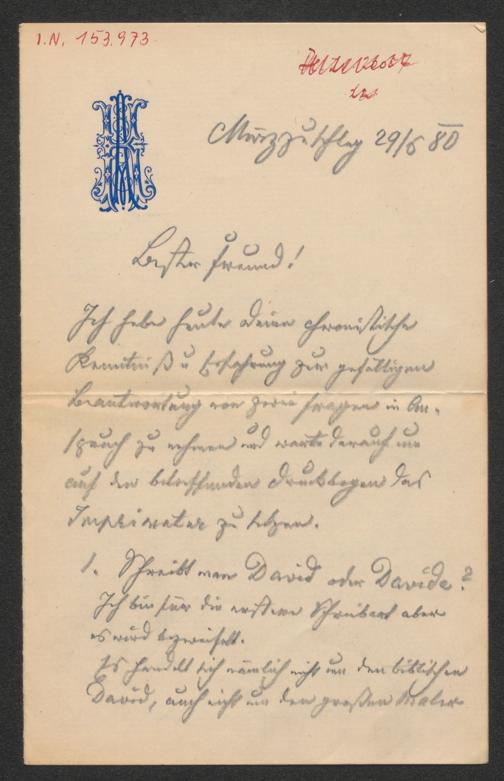 I.N. 153.973
Mürzzuschlag 29/6 80
Bester Freund!
Ich habe heute deine chronistische
Kenntniß u Erfahrung zur gefälligen
Beantwortung von zwei Fragen in An-
spruch zu nehmen und warte darauf um
auf den betreffenden Druckbogen das
Imprimatur zu setzen.
1. Schreibt man David oder Davide?
Ich bin für die erstere Schreibart aber
es wird bezweifelt.
Es handelt sich nämlich nicht um den biblischen
David, auch nicht um den großen Maler